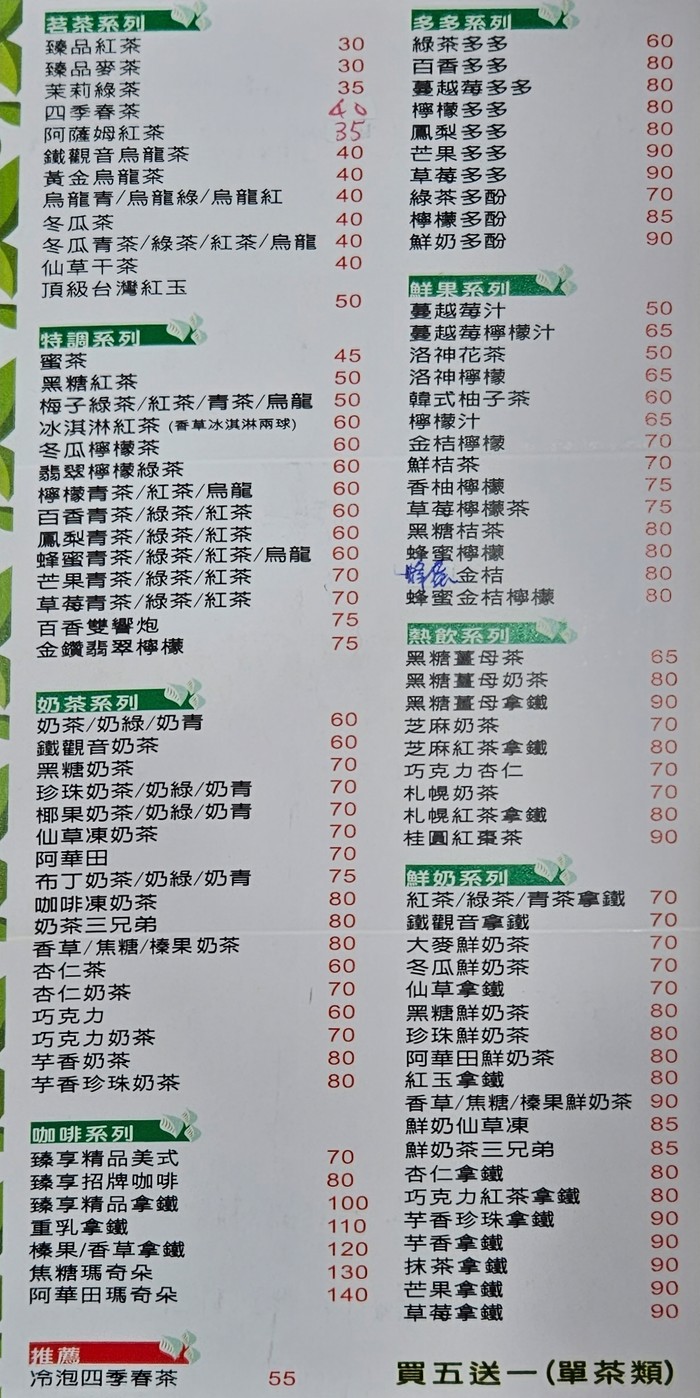 茗茶系列
臻品紅茶 30
臻品麥茶 30
茉莉綠茶 35
四季春茶 40
阿薩姆紅茶 35
鐵觀音烏龍茶 40
黃金烏龍茶 40
烏龍青/烏龍綠/烏龍紅 40
冬瓜茶 40
冬瓜青茶/綠茶/紅茶/烏龍 40
仙草干茶 40
頂級台灣紅玉 50
特調系列
蜜茶 45
黑糖紅茶 50
梅子綠茶/紅茶/青茶/烏龍 50
冰淇淋紅茶 (香草冰淇淋兩球) 60
冬瓜檸檬茶 60
翡翠檸檬綠茶 60
檸檬青茶/紅茶/烏龍 60
百香青茶/綠茶/紅茶 60
鳳梨青茶/綠茶/紅茶 60
蜂蜜青茶/綠茶/紅茶/烏龍 60
芒果青茶/綠茶/紅茶 70
草莓青茶/綠茶/紅茶 70
百香雙響炮 75
金鑽翡翠檸檬 75
奶茶系列
奶茶/奶綠/奶青 60
鐵觀音奶茶 60
黑糖奶茶 70
珍珠奶茶/奶綠/奶青 70
椰果奶茶/奶綠/奶青 70
仙草凍奶茶 70
阿華田 70
布丁奶茶/奶綠/奶青 75
咖啡凍奶茶 80
奶茶三兄弟 80
香草/焦糖/榛果奶茶 80
杏仁茶 60
杏仁奶茶 70
巧克力 60
巧克力奶茶 70
芋香奶茶 80
芋香珍珠奶茶 80
咖啡系列
臻享精品美式 70
臻享招牌咖啡 80
臻享精品拿鐵 100
重乳拿鐵 110
榛果/香草拿鐵 120
焦糖瑪奇朵 130
阿華田瑪奇朵 140
推薦
冷泡四季春茶 55
多多系列
綠茶多多 60
百香多多 80
蔓越莓多多 80
檸檬多多 80
鳳梨多多 80
芒果多多 90
草莓多多 90
綠茶多酚 70
檸檬多酚 85
鮮奶多酚 90
鮮果系列
蔓越莓汁 50
蔓越莓檸檬汁 65
洛神花茶 50
洛神檸檬 65
韓式柚子茶 60
檸檬汁 65
金桔檸檬 70
鮮桔茶 70
香柚檸檬 75
草莓檸檬茶 75
黑糖桔茶 80
蜂蜜檸檬 80
蜂蜜金桔 80
蜂蜜金桔檸檬 80
熱飲系列
黑糖薑母茶 65
黑糖薑母奶茶 80
黑糖薑母拿鐵 90
芝麻奶茶 70
芝麻紅茶拿鐵 80
巧克力杏仁 70
札幌奶茶 70
札幌紅茶拿鐵 80
桂圓紅棗茶 90
鮮奶系列
紅茶/綠茶/青茶拿鐵 70
鐵觀音拿鐵 70
大麥鮮奶茶 70
冬瓜鮮奶茶 70
仙草拿鐵 70
黑糖鮮奶茶 80
珍珠鮮奶茶 80
阿華田鮮奶茶 80
紅玉拿鐵 80
香草/焦糖/榛果鮮奶茶 90
鮮奶仙草凍 85
鮮奶茶三兄弟 85
杏仁拿鐵 80
巧克力紅茶拿鐵 80
芋香珍珠拿鐵 90
芋香拿鐵 90
抹茶拿鐵 90
芒果拿鐵 90
草莓拿鐵 90
買五送一(單茶類)